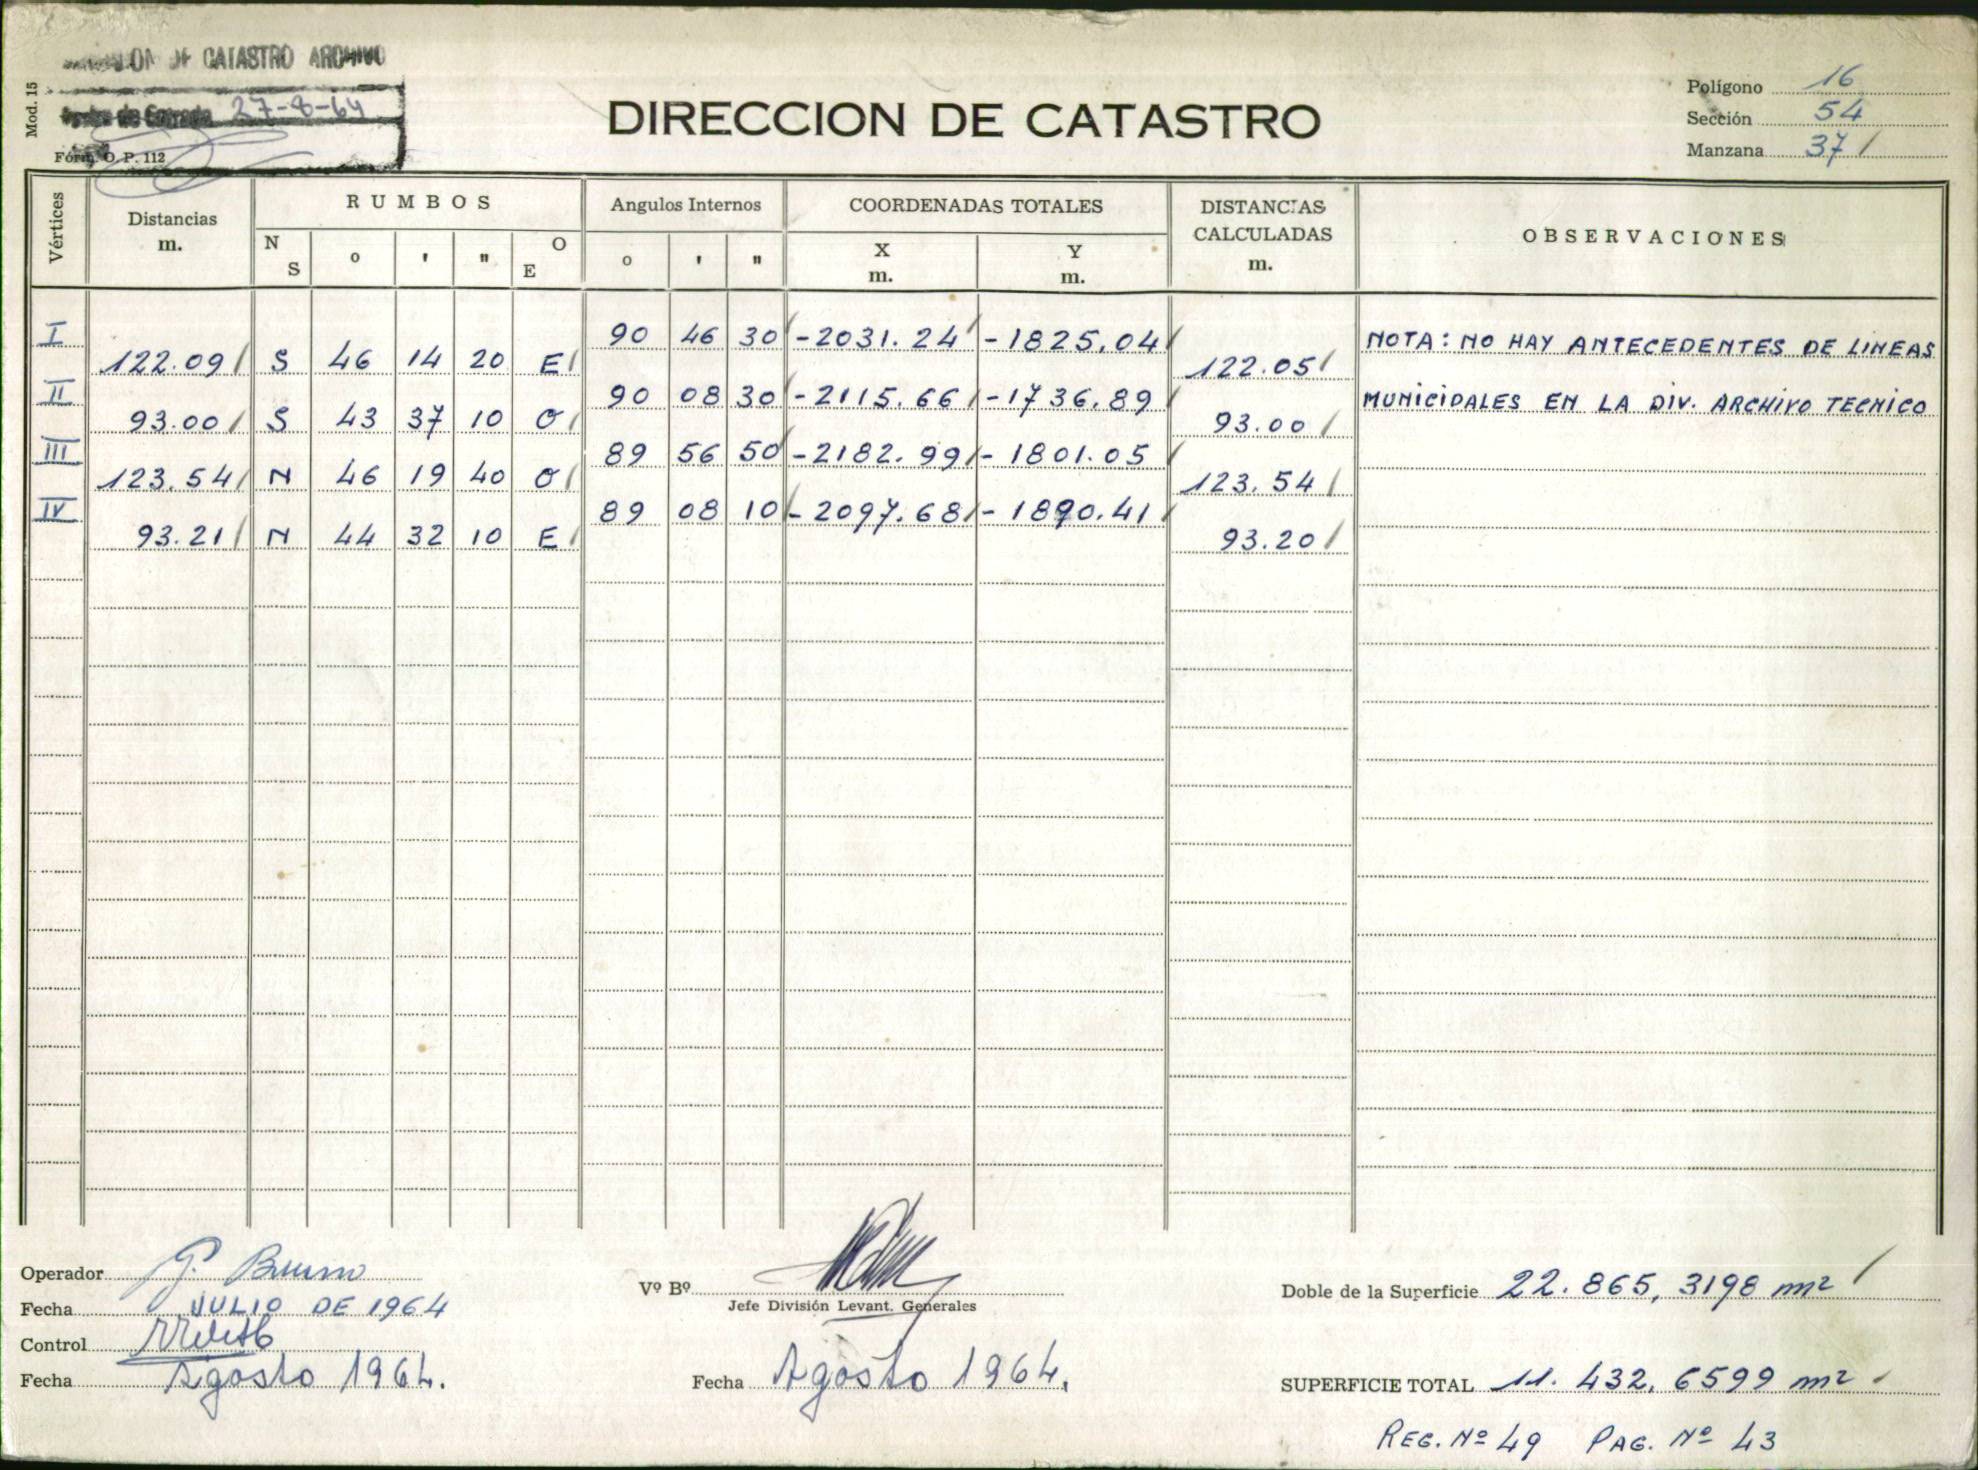 DE CATASTRO ARCHIVO
27-8-64
Mod. 15
Fórm. O. P. 112
DIRECCION DE CATASTRO
Polígono 16
Sección 54
Manzana 37 /
Vértices
Distancias m.
RUMBOS
N S o ' " O E
Angulos Internos
o ' "
COORDENADAS TOTALES
X m. Y m.
DISTANCIAS CALCULADAS m.
OBSERVACIONES
I 90 46 30 / -2031.24 / -1825.04 / NOTA: NO HAY ANTECEDENTES DE LINEAS
122.09 / S 46 14 20 E / 122.05 /
II 90 08 30 / -2115.66 / -1736.89 / MUNICIPALES EN LA DIV. ARCHIVO TECNICO
93.00 / S 43 37 10 O / 93.00 /
III 89 56 50 / -2182.99 / -1801.05 /
123.54 / N 46 19 40 O / 123.54 /
IV 89 08 10 / -2097.68 / -1890.41 /
93.21 / N 44 32 10 E / 93.20 /
Operador G. Bruno
Fecha JULIO DE 1964
Control
Fecha Agosto 1964.
Vº Bº
Jefe División Levant. Generales
Fecha Agosto 1964.
Doble de la Superficie 22.865,3198 m2 /
SUPERFICIE TOTAL 11.432,6599 m2 /
REG. Nº 49 PAG. Nº 43